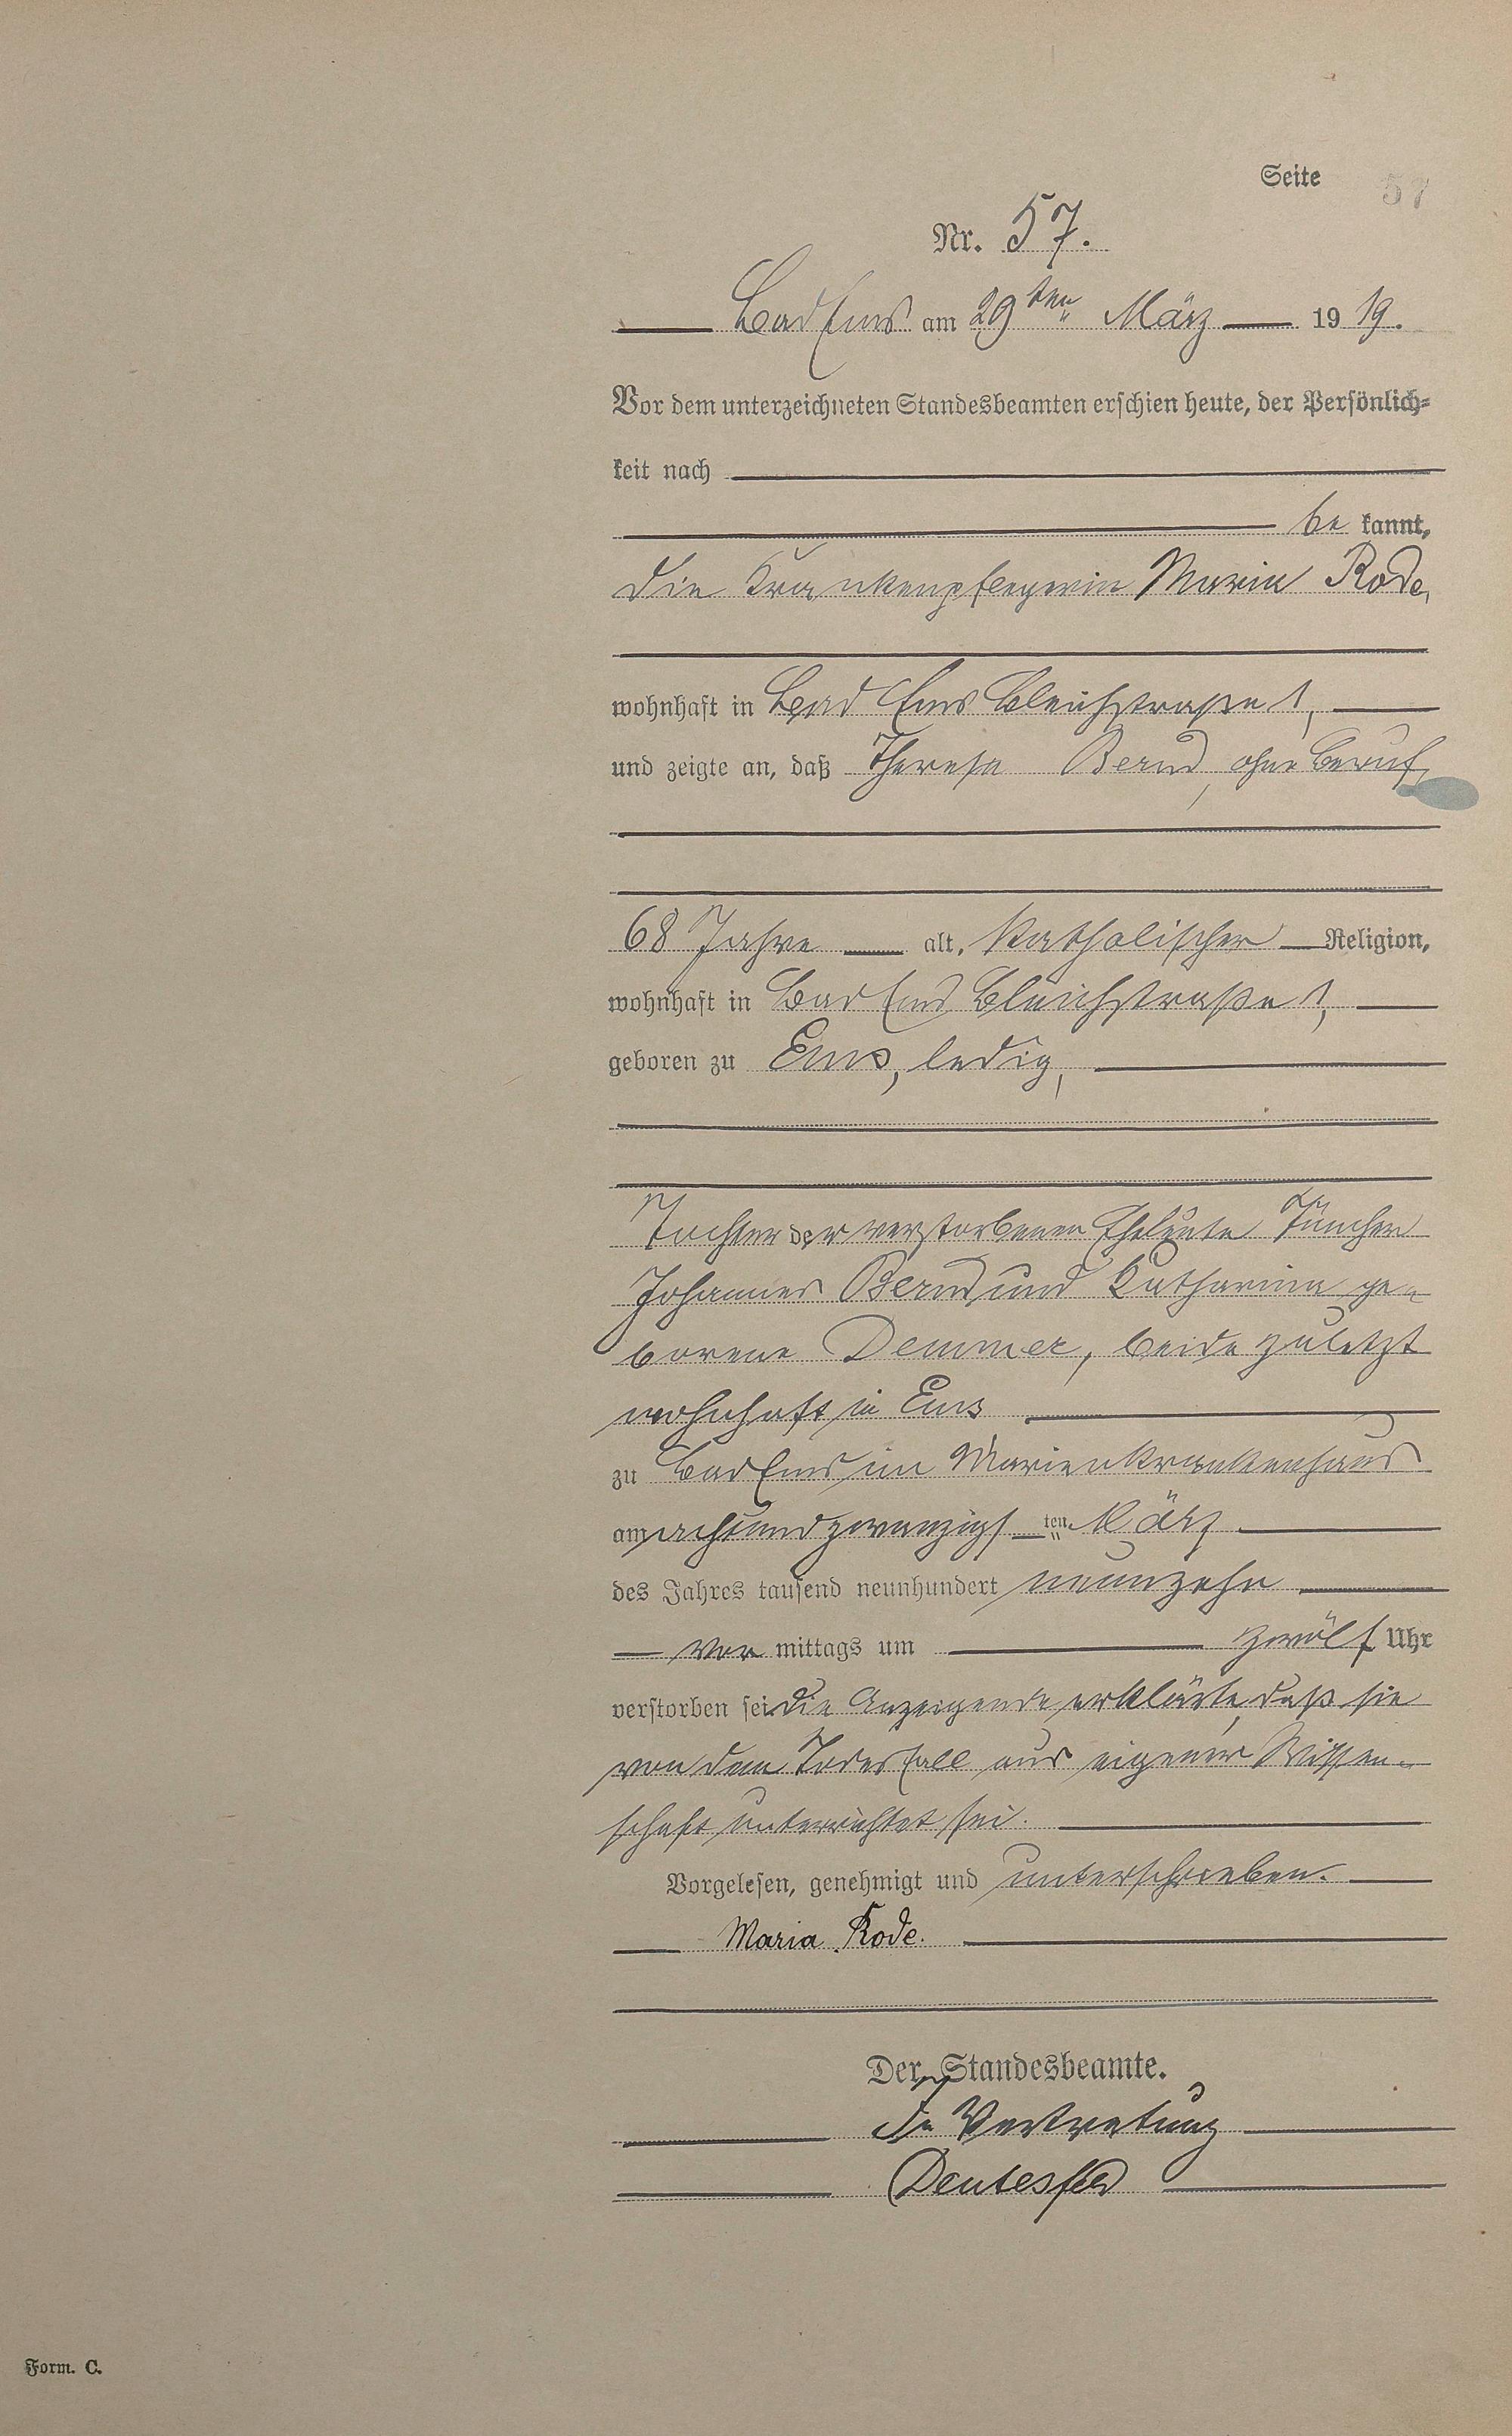 Seite 57
Nr. 57.
Bad Ems am 29ten März 1919.
Vor dem unterzeichneten Standesbeamten erschien heute, der Persönlich-
keit nach
be kannt,
die Krankenpflegerin Maria Rode,
wohnhaft in Bad Ems Bleichstraße 1,
und zeigte an, daß Therese Bernd, ohne Beruf,
68 Jahre alt, katholischer Religion,
wohnhaft in Bad Ems Bleichstraße 1,
geboren zu Ems, ledig,
Tochter der verstorbenen Eheleute Tüncher
Johannes Bernd und Katharina ge-
borene Demmer, beide zuletzt
wohnhaft in Ems
zu Bad Ems im Marienkrankenhaus
am achtundzwanzigsten März
des Jahres tausend neunhundert neunzehn
vor mittags um zwölf Uhr
verstorben sei. Die Anzeigende erklärte, daß sie
von dem Todesfall aus eigener Wissen-
schaft unterrichtet sei.
Vorgelesen, genehmigt und unterschrieben.
Maria Rode.
Der Standesbeamte.
In Vertretung
Deutesfeld
Form. C.